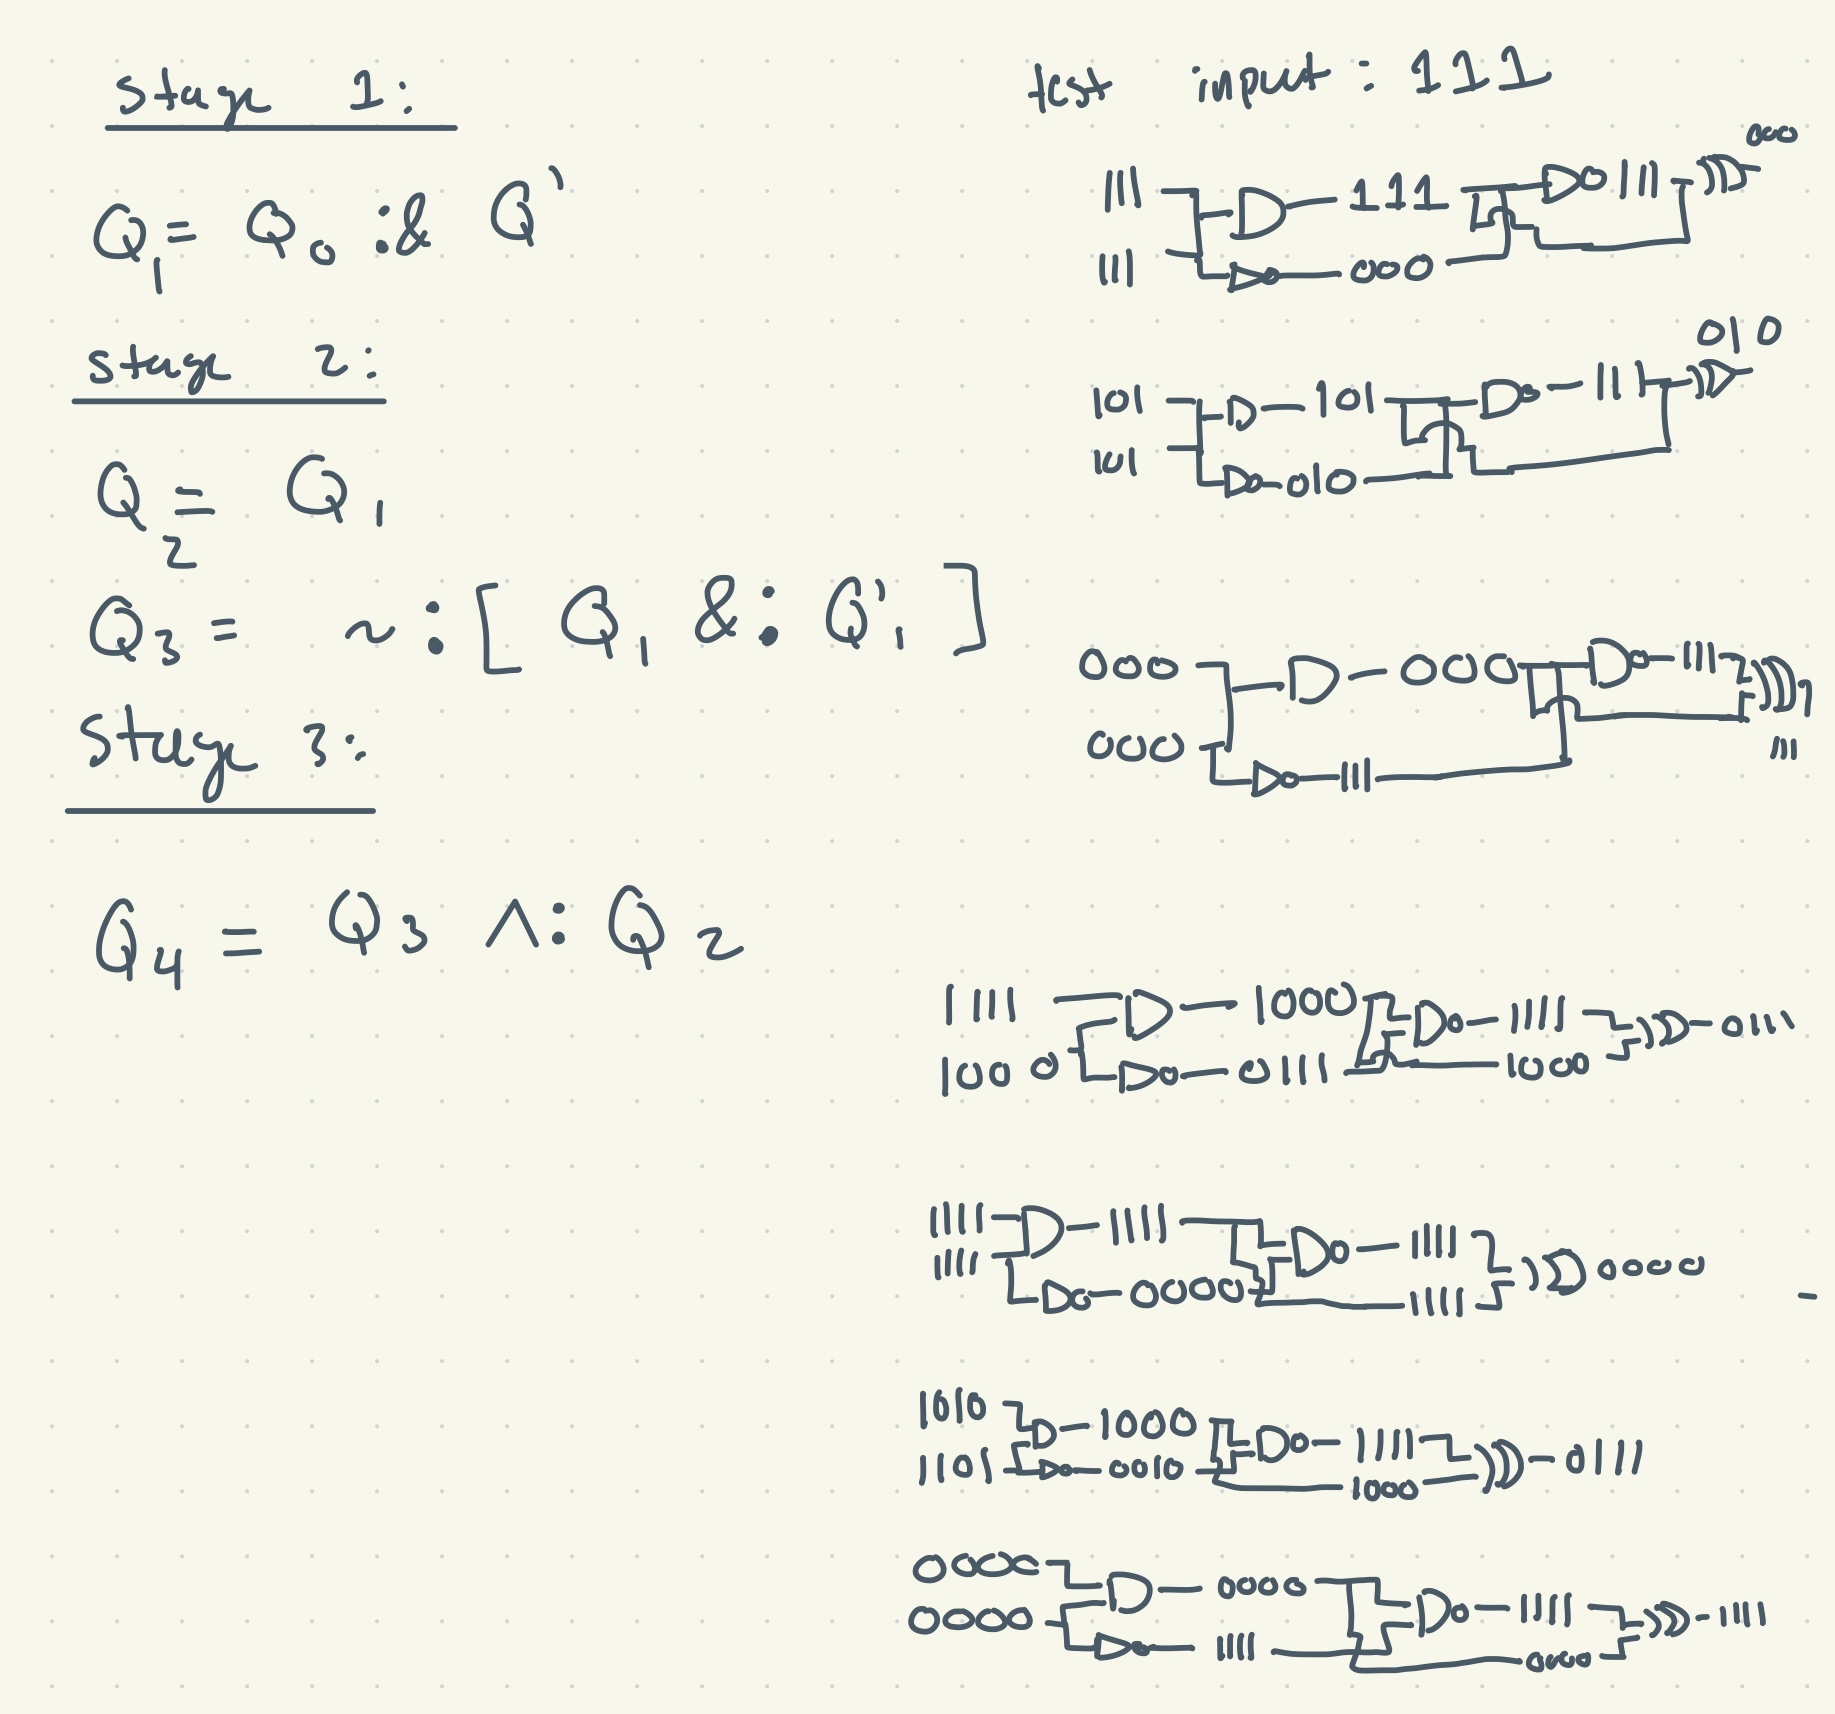 stage 1:
Q₁ = Q₀ :& Q'
stage 2:
Q₂ = Q₁
Q₃ = ~:[Q₁ &: Q'₁]
stage 3:
Q₄ = Q₃ ∧: Q₂
test input : 111
000
111 111 0111
111 000
010
101 101 111
101 010
000 000 111
000 111
111
1111 1000 1111 0111
1000 0111 1000
1111 1111 1111 0000
1111 0000 1111
1010 1000 1111 0111
1101 0010 1000
0000 0000 1111 1111
0000 1111 0000